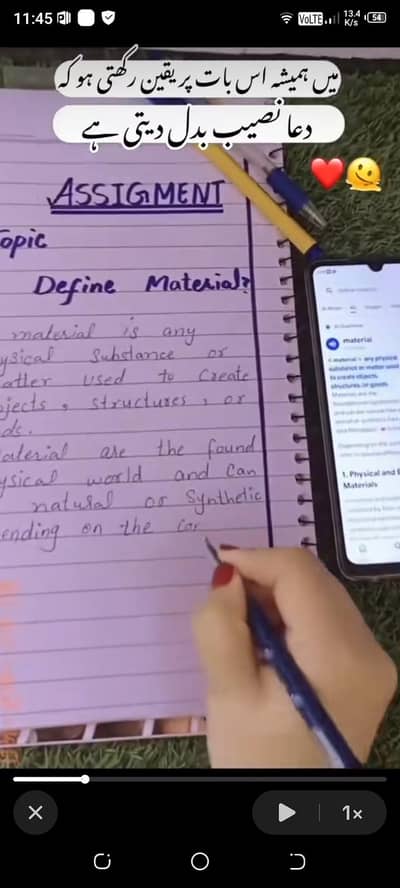 11:45
VoLTE
13.4
K/s
54
میں ہمیشہ اس بات پر یقین رکھتی ہو کہ
دعا نصیب بدل دیتی ہے
ASSIGMENT
opic
Define Material?
material is any
ysical substance or
atter used to create
jects, structures, or
ds.
aterial are the found
ysical world and can
natural or Synthetic
ending on the cor
material
< material > any physical
substance or matter used
to create objects,
structures, or goods.
1. Physical and
Materials
1x